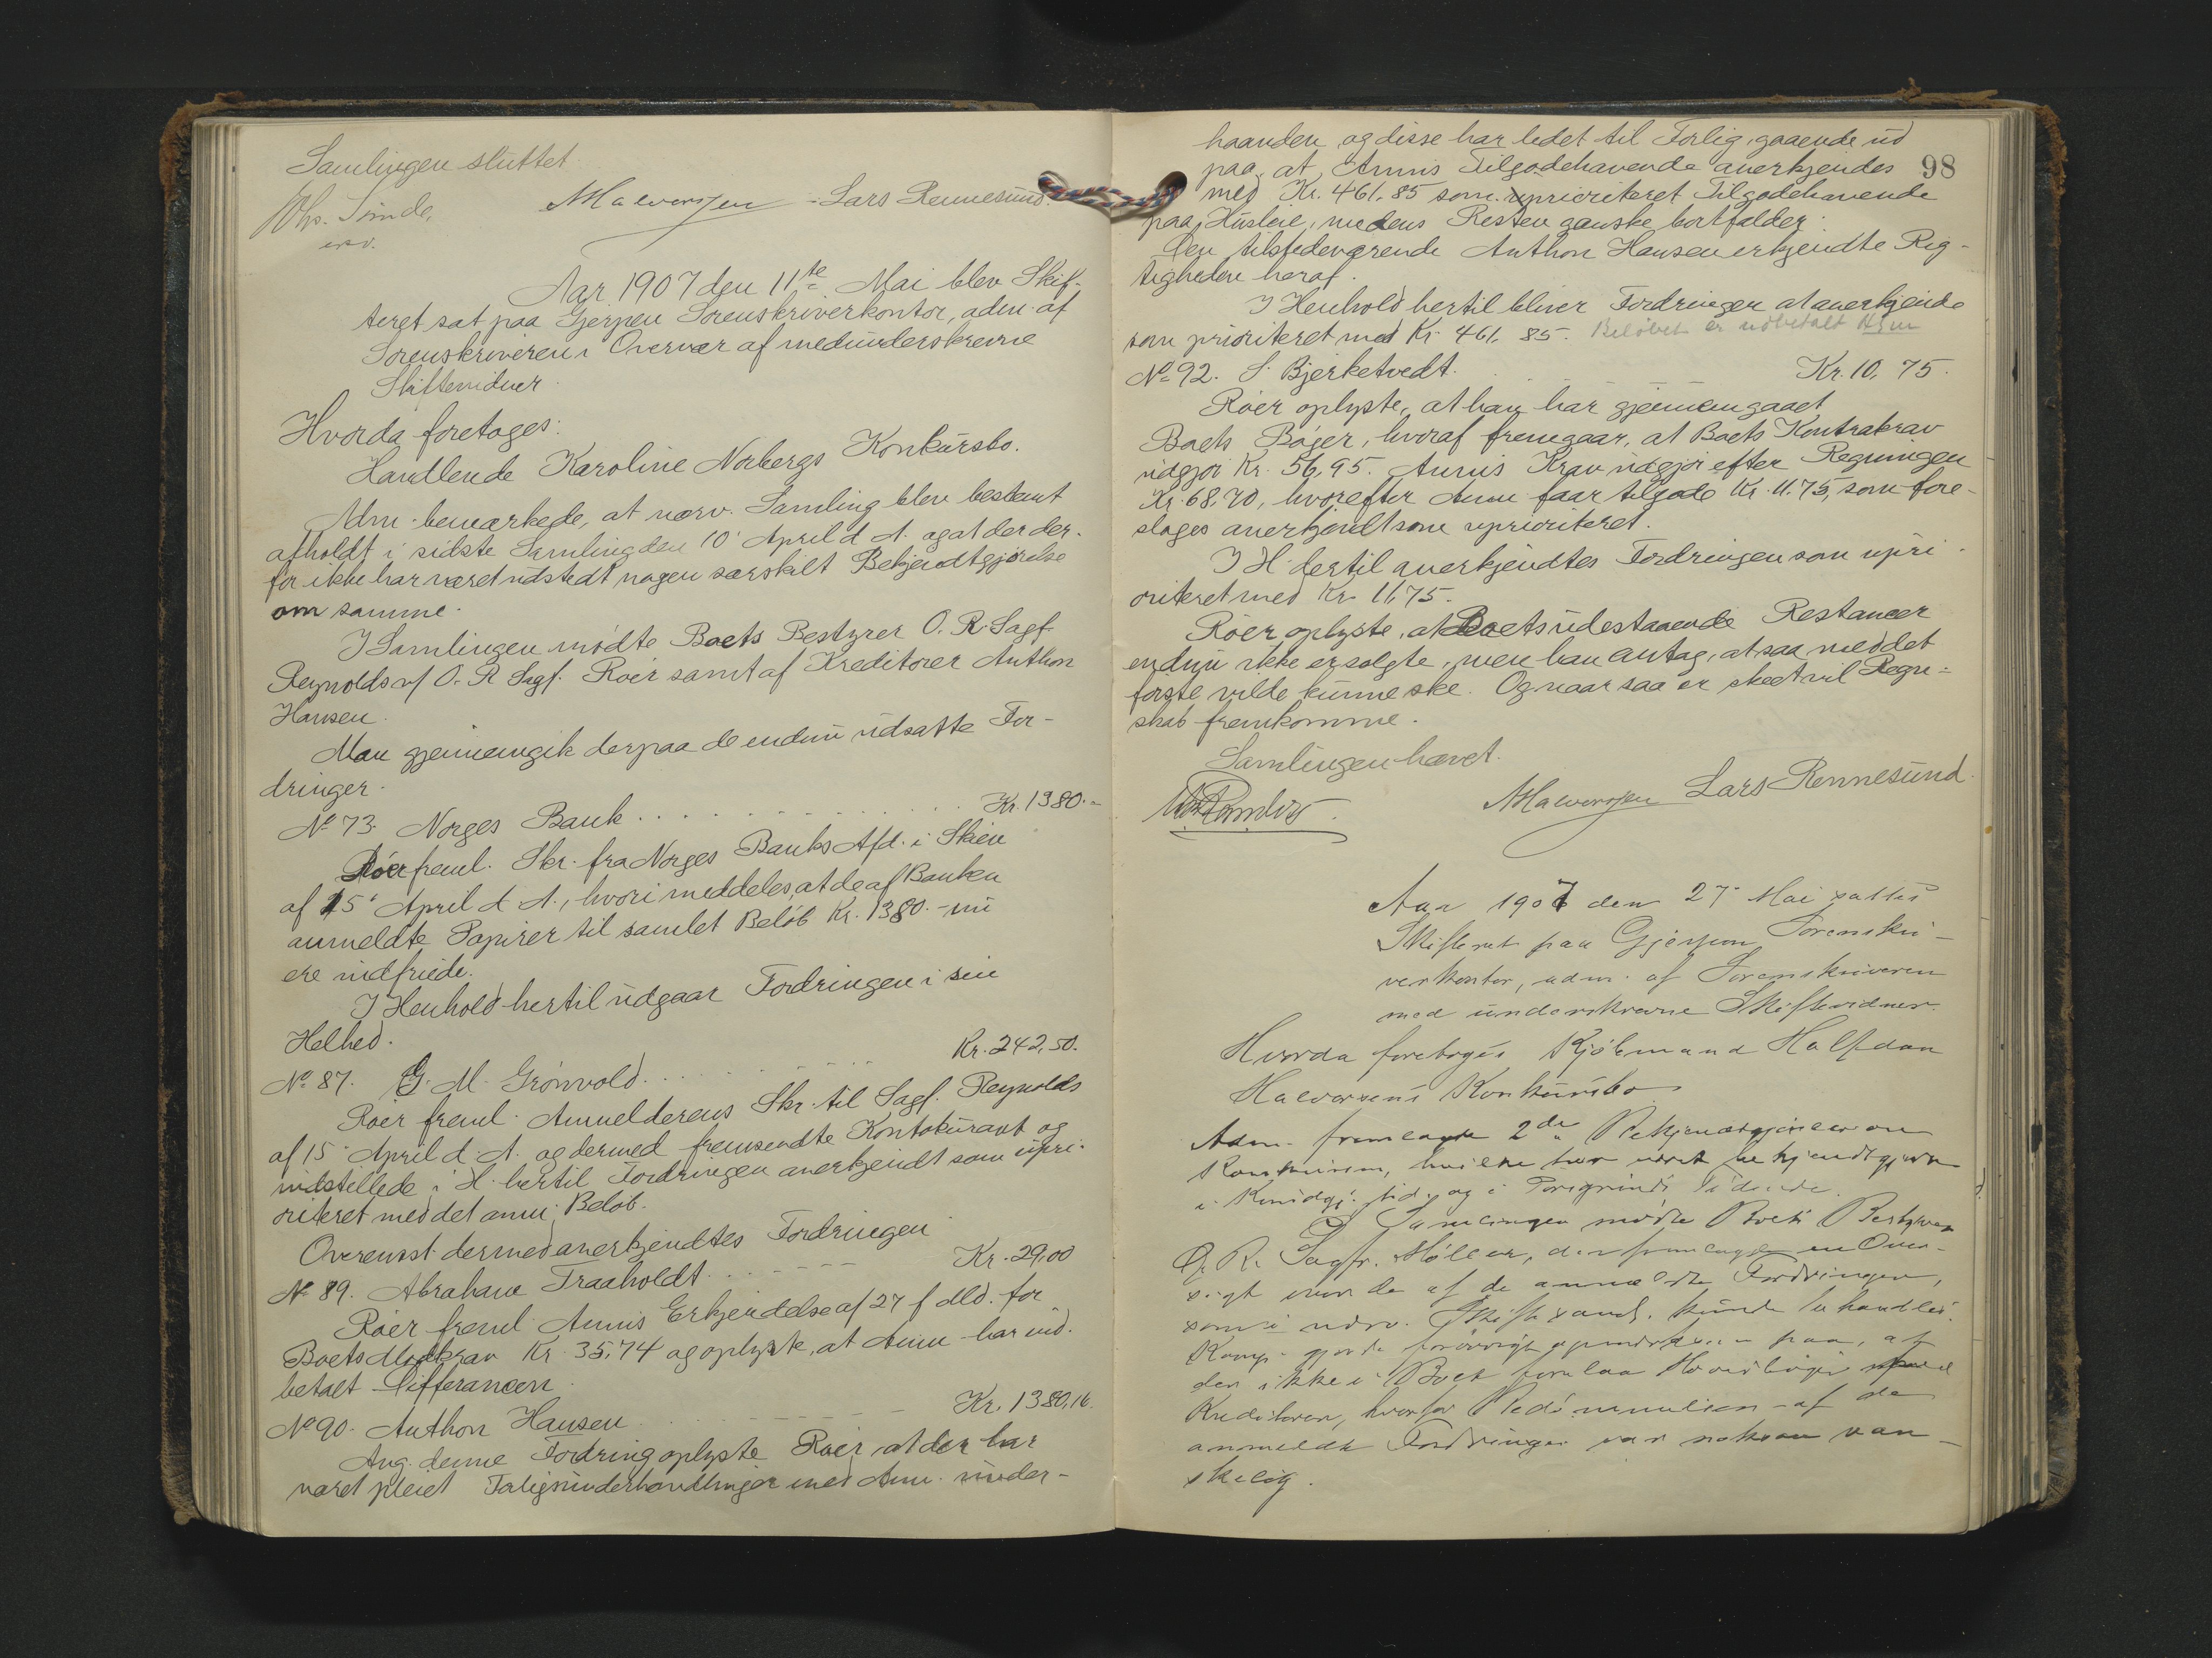 Samlingen sluttet
Chs. Tønde,
Halvorsen - Lars Rennesund.
Aar 1907 den 11te Mai blev Skif-
teret sat paa Gjerpen Sorenskriverkontor, adm. af
Sorenskriveren i Overvær af medunderskrevne
Skiftevidner
Hvorda foretoges:
Handlende Karoline Norbergs Konkursbo.
Adm. bemærkede, at nærv. Samling blev bestemt
afholdt i sidste Samling den 10' April d. A. og at der der-
for ikke har været udstedt nogen særskilt Bekjendtgjørelse
om samme.
I Samlingen mødte Boets Bestyrer O. R. Sagf.
Reynolds v/ O. R. Sagf. Róer samt af Kreditorer Anthon
Hansen.
Man gjennemgik derpaa de endnu udsatte For-
dringer.
No 73. Norges Bank . . . . . . . . Kr. 1380.-
Róer freml. Skr. fra Norges Banks Afd. i Skien
af 15' April d. A., hvori meddeles, at de af Banken
anmeldte Papirer til samlet Beløb Kr. 1380.- nu
ere indfriede.
I Henhold hertil udgaar Fordringen i sin
Helhed.
No 87. G. M. Grønvold . . . . . Kr. 242,50.
Róer freml. Anmelderens Skr. til Sagf. Reynolds
af 15' April d. A. og dermed fremsendte Kontokurant og
indstillede i H. hertil Fordringen anerkjendt som upri-
oriteret med det anm. Beløb.
Overensst. dermed anerkjendtes Fordringen
No 89. Abraham Traaholdt . . - - - - Kr. 29,00
Róer freml. Anms Erkjendelse af 27 f. Md. for
Boets Modkrav Kr. 35,74 og oplyste, at Anm. har ind-
betalt Differancen.
No 90. Anthon Hansen . . - - - - - Kr. 1380,16.
Ang. denne Fordring oplyste Róer, at der har
været pleiet Forligsunderhandlinger med Anm. under-
98
haanden, og disse har ledet til Forlig, gaaende ud
paa, at Anms Tilgodehavende anerkjendes
med Kr. 461,85 som uprioriteret Tilgodehavende
paa Husleie, medens Resten ganske bortfalder.
Den tilstedeværende Anthon Hansen erkjendte Rig-
tigheden heraf.
I Henhold hertil bliver Fordringen at anerkjende
som prioriteret med Kr. 461,85. Beløbet er udbetalt
No 92. S. Bjerketvedt. Kr. 10,75.
Róer oplyste, at han har gjennemgaaet
Boets Bøger, hvoraf fremgaar, at Boets Kontrakrav
udgjør Kr. 56,95. Anms Krav udgjør efter Regningen
Kr. 68,70, hvorefter Anm. faar tilgode Kr. 11.75, som fore-
slages anerkjendt som uprioriteret.
I H. dertil anerkjendtes Fordringen som upri-
oriteret med Kr. 11,75.
Róer oplyste, at Boets udestaaende Restancer
endnu ikke er solgte, men han antag, at saa med det
første vilde kunne ske. Og naar saa er skeet vil Regn-
skab fremkomme.
Samlingen hævet.
Halvorsen Lars Rennesund.
Aar 1907 den 27' Mai sattes
Skifteret paa Gjerpen Sorenskri-
verkontor, adm. af Sorenskriveren
med underskrevne Skiftevidner.
Hvorda foretoges Kjøbmand Halfdan
Halvorsens Konkursbo
Adm. fremlagde 2de Bekjendtgjørelser om
Konkursen, hvilke har været bekjendtgjorte
i Kundgj. tid. og i Porsgrunds Tidende.
I Samlingen mødte Boets Bestyrer
O. R. Sagfr. Møller, der fremlagde en Over-
sigt over de af de anmeldte Fordringer,
som i nærv. Skiftesaml. kunde behandles.
gjorde forøvrigt opmærksom paa, at
der ikke i Boet forelaa Hovedbøger
Kreditorer, hvorfor Bedømmelsen af de
anmeldte Fordringer var noksaa van-
skelig.